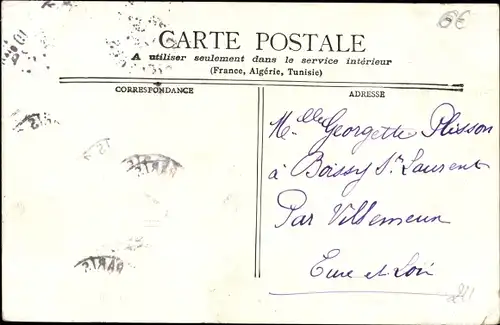 CARTE POSTALE
A utiliser seulement dans le service intérieur
(France, Algérie, Tunisie)
CORRESPONDANCE
ADRESSE
Mlle Georgette Plisson
à Boissy St Laurent
Par Villemeux
Eure et Loir
PARIS
PARIS